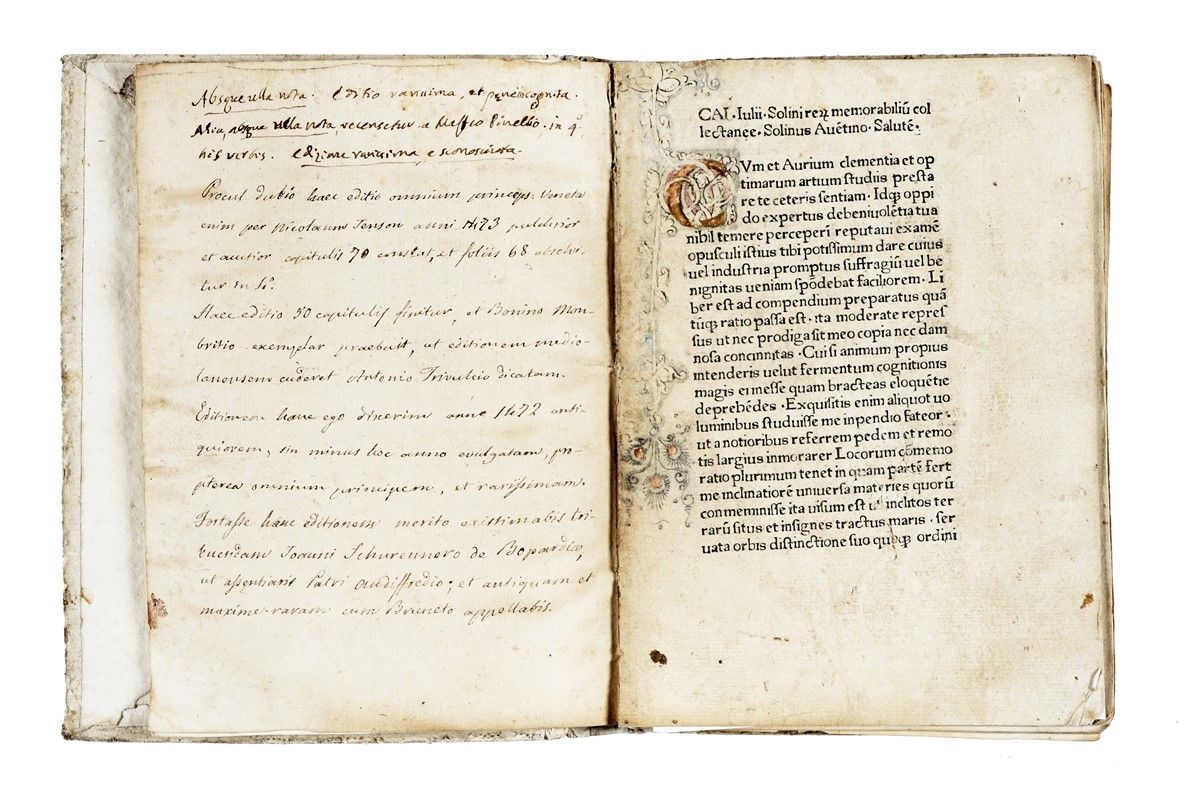 Absque ulla nota. Editio rarissima, et pene incognita.
Alia, absque ulla nota recensetur a Maffeo Pinellio. in 4.º
his verbis. edizione rarissima e sconosciuta.
Procul dubio haec editio omnium princeps: Veneta
enim per Nicolaum Jenson anni 1473 pulchrior
et auctior capitulis 70 constat, et foliis 68 absolvi-
tur in 4º.
Haec editio 50 capitulis finitur, et Bonino Mom-
britio exemplar praebuit, ut editionem medio-
lanensem cuderet Antonio Trivulcio dicatam.
Editionem hanc ego dixerim anno 1472 anti-
quiorem, sin minus hoc anno evulgatam, pro-
pterea omnium principem, et rarissimam.
Fortasse hanc editionem merito existimabis tri-
buendam Joanni Schurennero de Bopardia,
ut assentiaris Patri Audiffredio; et antiquam et
maxime raram cum Bruneto appellabis.
CAI. Iulii. Solini reꝝ memorabiliū col
lectanee. Solinus Auētino. Salutē.
CVm et Aurium clementia et op
timarum artium studiis presta
re te ceteris sentiam. Idqꝫ oppi
do expertus de beniuolētia tua
nibil temere perceperī reputaui examē
opusculi istius tibi potissimum dare cuius
uel industria promptus suffragiū uel be
nignitas ueniam spōdebat faciliorem. Li
ber est ad compendium preparatus quā
tūqꝫ ratio passa est. ita moderate repres
sus ut nec prodiga sit meo copia nec dam
nosa concinnitas. Cui si animum propius
intenderis uelut fermentum cognitionis
magis ei inesse quam bracteas eloquētie
deprehēdes. Exquisitis enim aliquot uo
luminibus studuisse me inpendio fateor.
ut a notioribus referrem pedem et remo
tis largius inmorarer Locorum cōmemo
ratio plurimum tenet in quam partē fert
me inclinatiorē uniuersa materies quorū
conmeminisse ita uisum est ut inclitos ter
rarū situs et insignes tractus maris. ser
uata orbis distinctione suo quoqꝫ ordini